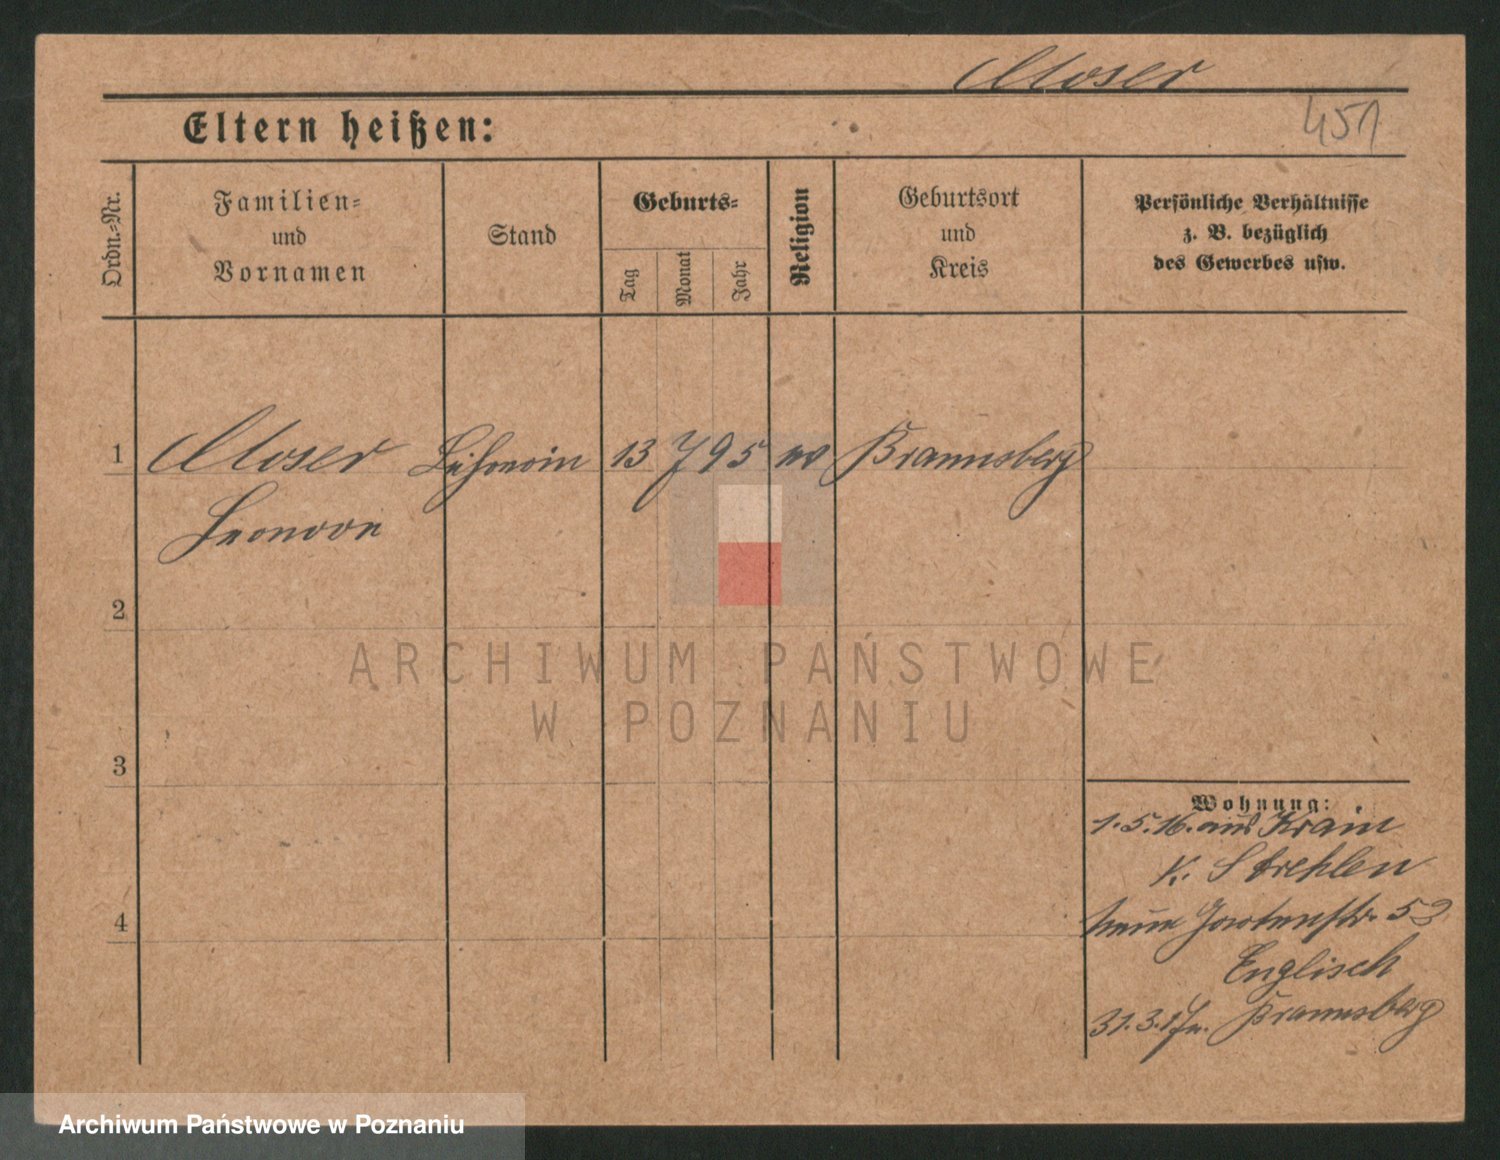 Moser
451
Eltern heißen:
Ordn.-Nr.
Familien-
und
Vornamen
Stand
Geburts-
Tag
Monat
Jahr
Religion
Geburtsort
und
Kreis
Persönliche Verhältnisse
z. B. bezüglich
des Gewerbes usw.
1 Moser 13 7 95 ev Braunsberg
Leonore
2
3
4
Wohnung:
1.5.16. aus Krain
K. Strehlen
neue Gartenstr. 52
Englisch
31.3.17 n. Braunsberg
ARCHIWUM PAŃSTWOWE
W POZNANIU
Archiwum Państwowe w Poznaniu